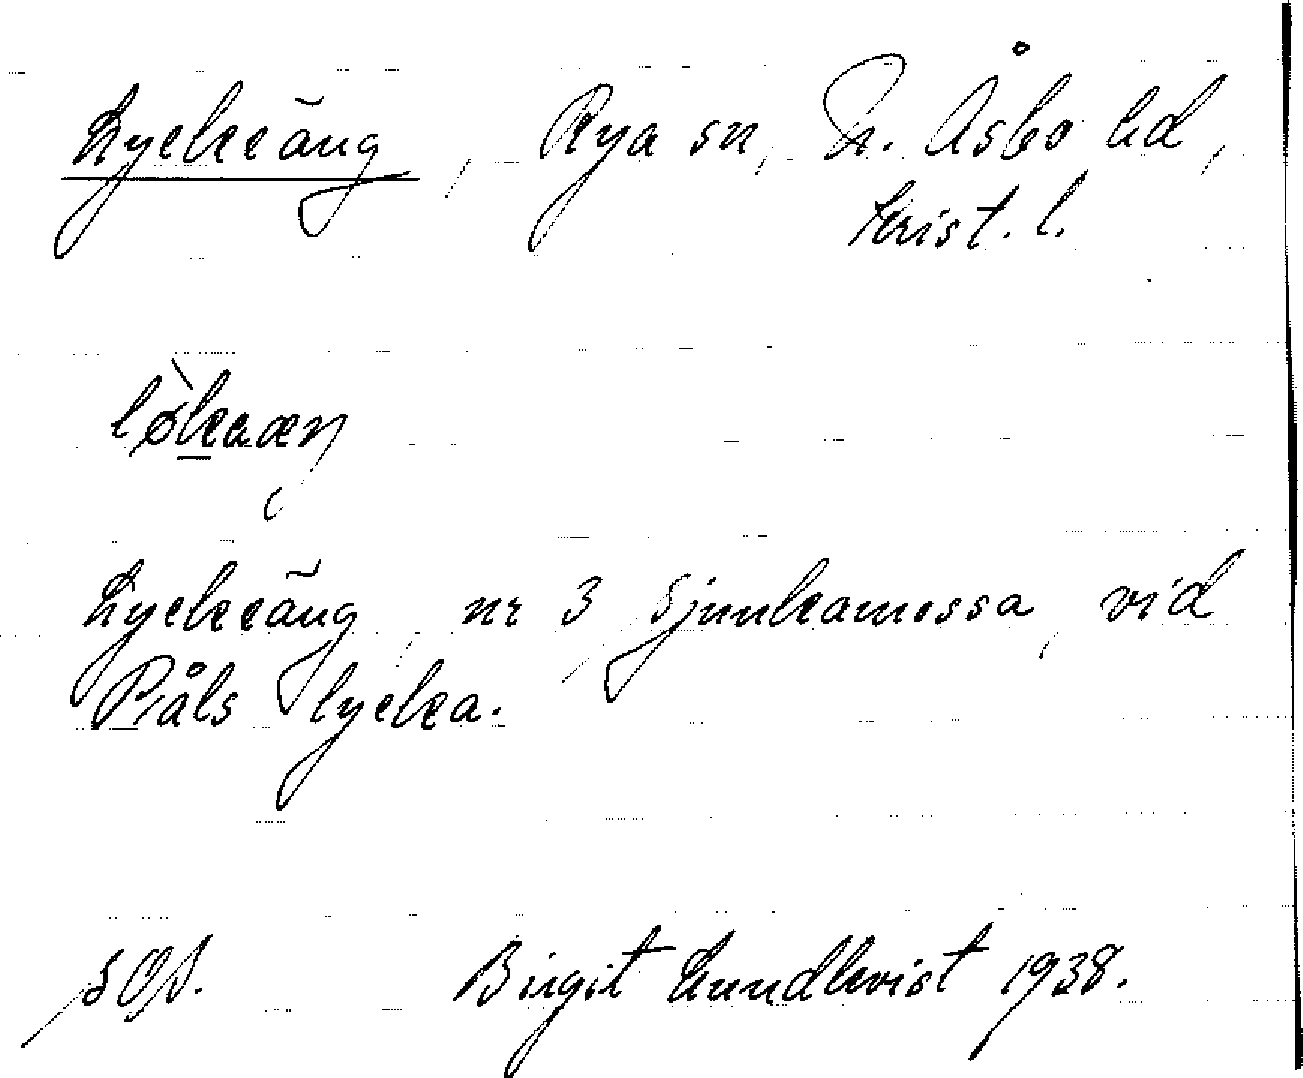 Lyckeäng, Rya sn, N. Åsbo hd,
Krist. l.
Lyckeäng, nr 3 Sjunkamossa, vid
Påls lycka.
Birgit Lundkvist 1938.